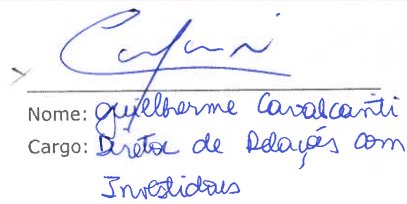 Nome: Guilherme Cavalcanti
Cargo: Diretor de Relações com
Investidores